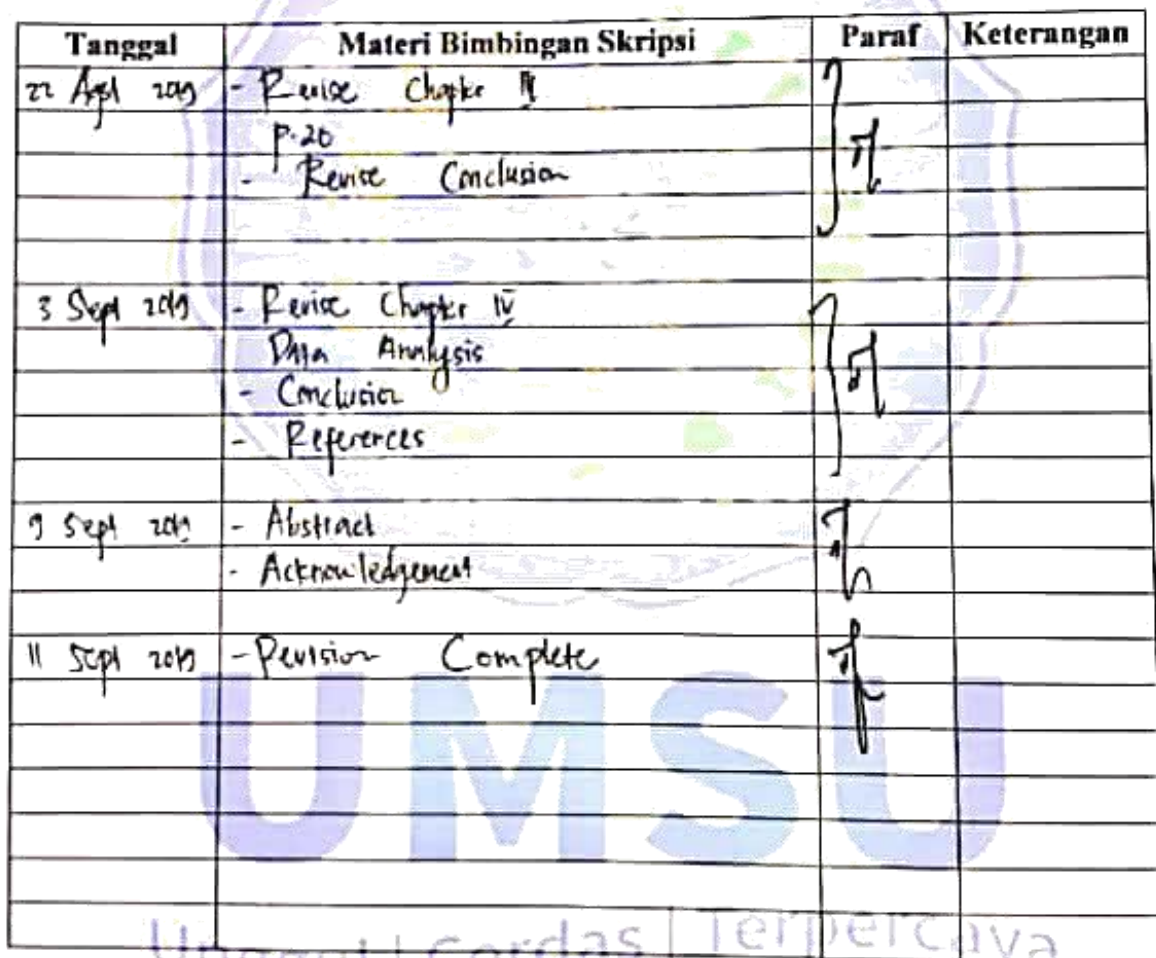 Tanggal Materi Bimbingan Skripsi Paraf Keterangan
22 Agst 2019 - Revise Chapter
p.20
- Revise Conclusion
3 Sept 2019 - Revise Chapter IV
Data Analysis
- Conclusion
- References
9 Sept 2019 - Abstract
- Acknowledgement
11 Sept 2019 - Revision Complete
UMSU
Unggul | Cerdas | Terpercaya